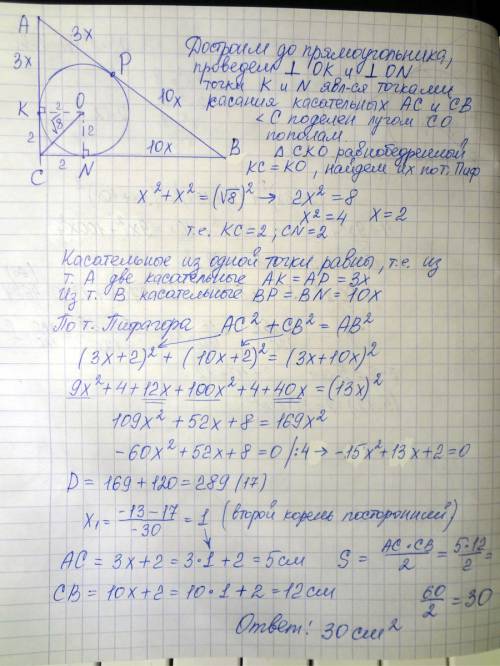 A
3x
3x
P
K
2
O
√8
2
10x
2
C
2
N
10x
B
Достроим до прямоугольника,
проведем ⊥ OK и ⊥ ON
точки K и N явл-ся точками
касания касательных AC и CB
<C поделен лучом CO
пополам
△ CKO равнобедренный
KC = KO, найдем их по т. Пиф
x² + x² = (√8)² → 2x² = 8
x² = 4 x = 2
т.е. KC = 2; CN = 2
Касательные из одной точки равны, т.е. из
т. A две касательные AK = AP = 3x
Из т. B касательные BP = BN = 10x
По т. Пифагора AC² + CB² = AB²
(3x+2)² + (10x+2)² = (3x+10x)²
9x² + 4 + 12x + 100x² + 4 + 40x = (13x)²
109x² + 52x + 8 = 169x²
-60x² + 52x + 8 = 0 |:4 → -15x² + 13x + 2 = 0
D = 169 + 120 = 289 (17)
x₁ = (-13-17)/-30 = 1 (второй корень посторонний)
AC = 3x + 2 = 3·1 + 2 = 5 см S = AC·CB/2 = 5·12/2 =
CB = 10x + 2 = 10·1 + 2 = 12 см 60/2 = 30
Ответ: 30 см²